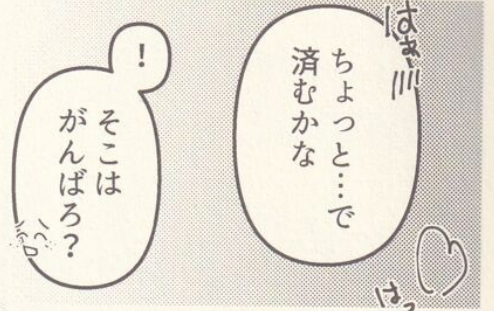 はぁー
ちょっと…で
済むかな
!
そこは
がんばろ?
はっ